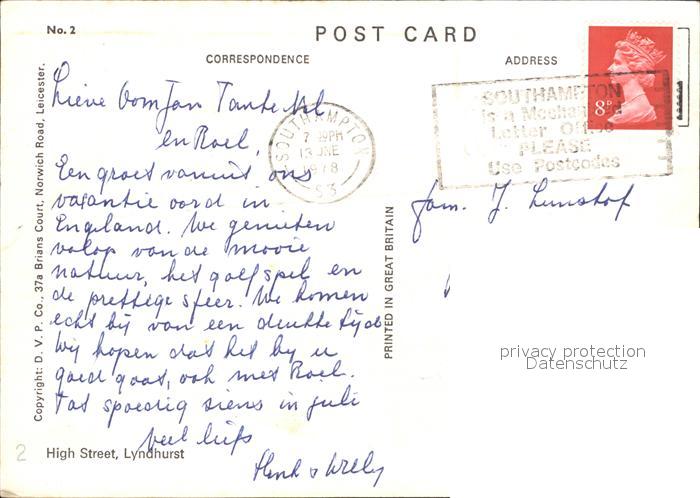 No. 2
POST CARD
CORRESPONDENCE
ADDRESS
Lieve Oom Jan Tante Nel
en Roel,
Een groet vanuit ons
vacantie oord in
Engeland. We genieten
volop van de mooie
natuur, het golfspel en
de prettige sfeer. We komen
echt bij van een drukke tijd
Wij hopen dat het bij u
goed gaat, ook met Roel.
Tot spoedig ziens in juli
veel liefs
Henk & Willy
SOUTHAMPTON
7 PM
13 JNE
1978
S3
SOUTHAMPTON
is a Mechanised
Letter Office
PLEASE
Use Postcodes
8P
fam. J.
PRINTED IN GREAT BRITAIN
Copyright: D. V. P. Co., 37a Brians Court, Norwich Road, Leicester.
privacy protection
Datenschutz
2
High Street, Lyndhurst